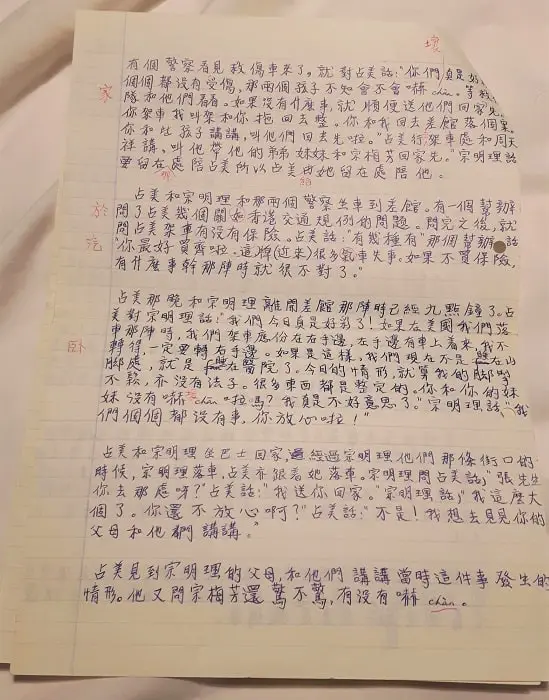 壞
有個警察看見救傷車來了,就對占美話:"你們真是好
個個都沒有受傷,那兩個孩子不知會不會嚇 chān。等
家
隊和他們看看。如果沒有什麼事,就順便送他們回家先。
你架車我叫架和你拖回去整。你和我回去差館落個
你和吐孩子講講,叫他們回去先啦。"占美行架車處和周大
祥講。叫他帶他的弟弟妹妹和宋梅芳回家先。"宗明理話
要留在處陪占美所以占美再她留在處陪他。
給
占美和宗明理和那兩個警察坐車到差館。有一個幫辦
於
問了占美幾個關如香港交通規例的問題。問完之後,就
問占美架車有沒有保險。占美話:"有幾種有"那個幫辦話
汽
"你最好買齊啦。這牌(近來)很多氣車失事。如果不買保險,
有什麼事幹那陣時就很不對了。"
占美那晚和宗明理離開差館那陣時已經九點鐘了。占
美對宗明理話:"我們今日真是好彩了!如果在美國我們落
車那陣時,我們架車應份在右手邊,在手邊有車上看來,我不
轉得,一定要轉右手邊。如果是這樣,我們現在不是 在山
臥
脚處,就是 在醫院了。今日的情形,就算我的脚掣
不欵,亦沒有法子。很多東西都是整定的。你和你的妹
妹沒有嚇 chān 啦嗎?我真是不好意思了。"宗明理話,"我
們個個都沒有事,你放心啦!"
占美和宗明理坐巴士回家,經過宗明理他們那條街口的
時候,宗明理落車,占美亦跟着她落車。宗明理問占美話,"張先生
你去那處呀?"占美話:"我送你回家。"宗明理話,"我這麼大
個了。你還不放心啊?"占美話:"不是!我想去見見你的
父母和他們講講。"
占美見到宗明理的父母,和他們講講當時這件事發生的
情形。他又問宗梅芳還驚不驚,有沒有嚇 chān。